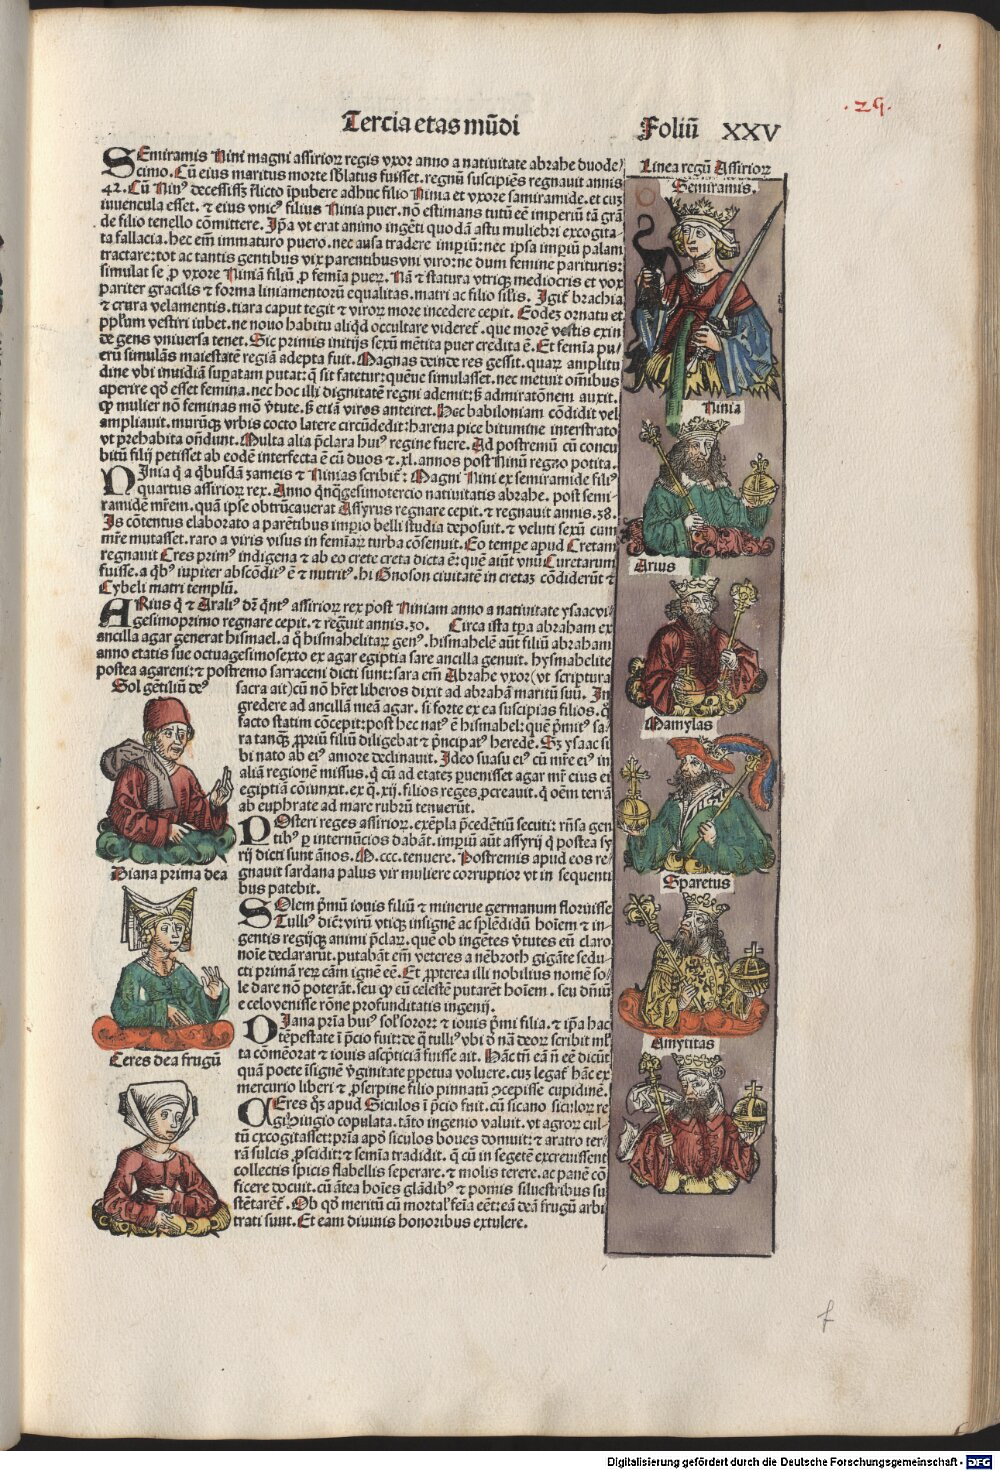 . 25 .
Tercia etas mũdi
Foliũ XXV
SEmiramis Nini magni assirioꝝ regis vxor anno a natiuitate abrahe duode/
cimo. Cũ eius maritus morte sblatus fuisset. regnũ suscipiẽs regnauit annis
42. Cũ Ninꝰ decessissꝫ relicto ĩpubere adhuc filio Ninia et vxore samiramide. et cuꝫ
iuuencula esset. ⁊ eius vnicꝰ filius Ninia puer. nõ estimans tutũ eẽ imperiũ tã grã
de filio tenello cõmittere. Ipa vt erat animo ingẽti quodã astu muliebri excogita-
ta fallacia. hec em̃ immaturo puero. nec ausa tradere impiũ: nec ipsa impiũ palam
tractare: tot ac tantis gentibus vix parentibus vni viro: ne dum femine parituris:
simulat se ꝓ vxore Niniã filiũ ꝓ femĩa puerꝫ. Nã ⁊ statura vtriqꝫ mediocris et vox
pariter gracilis ⁊ forma liniamentorũ equalitas. matri ac filio silis. Igit̃ brachia
⁊ crura velamentis. tiara caput tegit ⁊ viroꝝ more incedere cepit. Eodeꝫ ornatu et
pplm̃ vestiri iubet. ne nouo habitu aliqd occultare videret̃. que morẽ vestis exin
de gens vniuersa tenet. Sic primus initijs sexũ mẽtita puer credita ẽ. Et femĩa pu-
erũ simulãs maiestatẽ regiã adepta fuit. Magnas deinde res gessit. quaꝝ amplitu
dine vbi inuidiã supatam putat: q̃ sit fatetur: quẽue simulasset. nec metuit om̃ibus
aperire qd̃ esset femina. nec hoc illi dignitatẽ regni ademit: sꝫ admiratõnem auxit.
qp mulier nõ feminas mõ v̓tute. sꝫ etiã viros anteiret. Hec babiloniam cõdidit vel
ampliauit. murũqꝫ vrbis cocto latere circũdedit: harena pice bitumine interstrato
vt prehabita oñdunt. Multa alia p̃clara huiꝰ regine fuere. Ad postremũ cũ concu
bitũ filij petisset ab eodẽ interfecta ẽ cũ duos ⁊. xl. annos post Ninũ regno potita.
NInia q̃ a qbusdã zameis ⁊ Ninias scribit̃: Magni Nini ex semiramide filiꝰ
quartus assirioꝝ rex. Anno qnq̃gesimotercio natiuitatis abrahe. post semi-
ramidẽ mr̃em. quã ipse obtrũcauerat Assyrus regnare cepit. ⁊ regnauit annis. 38.
Is cõtentus elaborato a parẽtibus impio belli studia deposuit. ⁊ veluti sexũ cum
mr̃e mutasset. raro a viris visus in femĩaꝝ turba cõsenuit. Eo tempe apud Cretam
regnauit Cres primꝰ indigena ⁊ ab eo crete creta dicta ẽ: quẽ aiũt vnũ Curetarum
fuisse. a qbꝰ iupiter abscõditꝰ ẽ ⁊ nutritꝰ. hi Gnoson ciuitatẽ in cretaꝫ cõdiderũt ⁊
Cybeli matri templũ.
ARius q̃ ⁊ Araliꝰ dr̃ qntꝰ assirioꝝ rex post Niniam anno a natiuitate ysaac vi
gesimoprimo regnare cepit. ⁊ regnauit annis. 30. Circa ista tpa abraham ex
ancilla agar generat hismael. a q̃ hismahelitaꝝ genꝰ. hismahelẽ aũt filiũ abraham
anno etatis sue octuagesimosexto ex agar egiptia sare ancilla genuit. hysmahelite
postea agareni: ⁊ postremo sarraceni dicti sunt: sara em̃ Abrahe vxor (vt scriptura
sacra ait) cũ nõ hr̃et liberos dixit ad abrahã maritũ suũ. In
gredere ad ancillã meã agar. si forte ex ea suscipias filios. q̃
facto statim cõcepit: post hec natꝰ ẽ hismahel: que p̃mitꝰ sa-
ra tanq̃ꝫ ꝓpriũ filiũ diligebat ⁊ p̃ncipatꝰ heredẽ. Sꝫ ysaac si
bi nato ab eiꝰ amore declinauit. Ideo suasu eiꝰ cũ mr̃e eiꝰ in
aliã regionẽ missus. q̃ cũ ad etateꝫ puenisset agar mr̃ eius ei
egiptiã cõiunxit. ex q̃. xij. filios reges ꝓcreauit. q̃ oẽm terrã
ab euphrate ad mare rubrũ tenuerũt.
POsteri reges assirioꝝ. exẽpla p̃cedẽtiũ secuti: rñsa gen
tibꝰ p internũcios dabãt. impiũ aũt assyrij q̃ postea sy
rij dicti sunt ãnos. M.ccc. tenuere. Postremis apud eos re-
gnauit sardana palus vir muliere corruptior vt in sequenti
bus patebit.
SOlem p̃mũ iouis filiũ ⁊ minerue germanum floruisse
Tulliꝰ dic̃: virũ vtiqꝫ insignẽ ac splẽdidũ hoĩem ⁊ in-
gentis regijqꝫ animi p̃claꝝ. que ob ingẽtes v̓tutes eũ claro
noĩe declararũt. putabãt em̃ veteres a nẽbroth gigãte sedu-
cti primã reꝝ cãm ignẽ eẽ. Et ꝓpterea illi nobilius nomẽ so-
le dare nõ poterãt. seu qp eũ celestẽ putarẽt hoĩem. seu dñiũ
e celo venisse rõne profunditatis ingenij.
DIana prĩa huiꝰ sol̃ soror: ⁊ iouis p̃mi filia. ⁊ ip̃a hac
tẽpestate ĩ p̃cio fuit: de q̃ tulliꝰ vbi d̓ nã deoꝝ scribit ml̃
ta cõmẽorat ⁊ iouis asc̃pticiã fuisse ait. Hãc tñ eã ñ eẽ dicũt
quã poete ĩsignẽ v̓ginitate ppetua voluere. cuꝫ legat̃ hãc ex
mercurio liberi ⁊ ꝓserpine filio pinnatũ ↄcepisse cupidinẽ.
CEres q̃ꝫ apud Siculos ĩ p̃cio fuit. cũ sicano siculoꝝ re
ge ↄiugio copulata. tãto ingenio valuit. vt agroꝝ cul-
tũ excogitasset: prĩa apd̓ siculos boues domuit: ⁊ aratro ter-
rã sulcis ꝓscidit: ⁊ semĩa tradidit. q̃ cũ in segetẽ excreuissent
collectis spicis flabellis seperare. ⁊ molis terere. ac panẽ cõ
ficere docuit. cũ ãtea hoĩes glãdibꝰ ⁊ pomis siluestribus su
stẽtarẽt. Ob qd̓ meritũ cũ mortal̓ feĩa eẽt: eã deã frugũ arbi
trati sunt. Et eam diuinis honoribus extulere.
Sol gẽtiliũ deꝰ
Diana prima dea
Ceres dea frugũ
Linea regũ Assirioꝝ
Semiramis.
Ninia
Arius
Mamylas
Sparetus
Amytitas
f
Digitalisierung gefördert durch die Deutsche Forschungsgemeinschaft - DFG